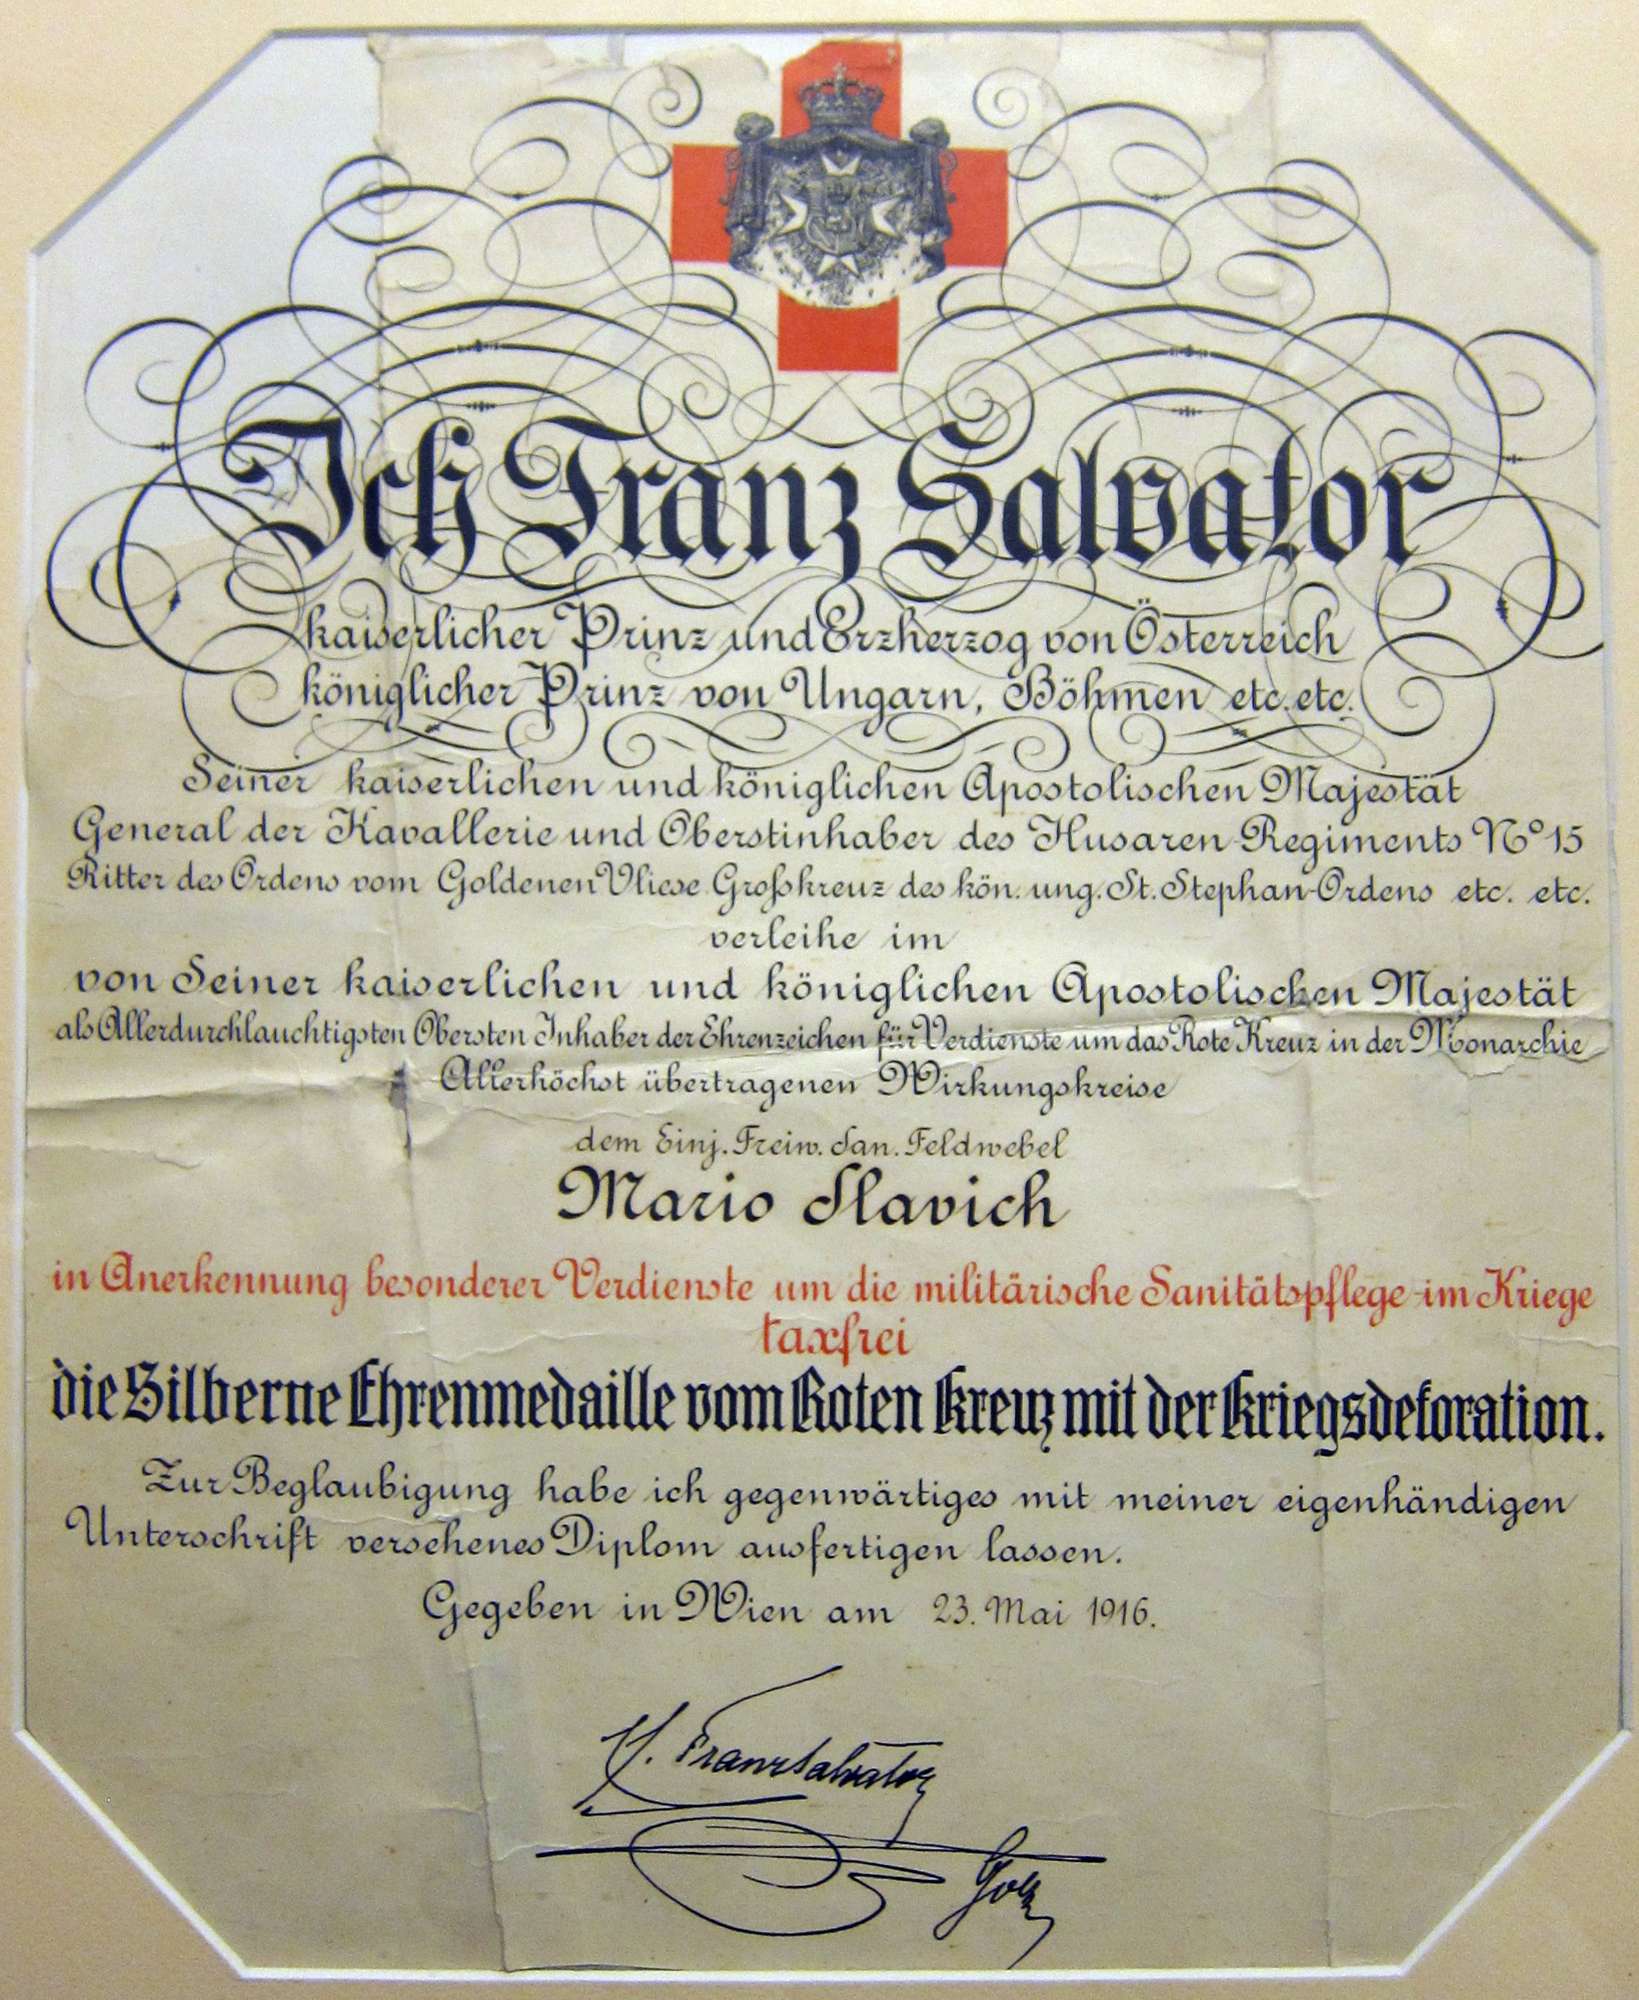 Ich Franz Salvator
kaiserlicher Prinz und Erzherzog von Österreich
königlicher Prinz von Ungarn, Böhmen etc. etc.
Seiner kaiserlichen und königlichen Apostolischen Majestät
General der Kavallerie und Oberstinhaber des Husaren-Regiments No 15
Ritter des Ordens vom Goldenen Vliese Großkreuz des kön. ung. St. Stephan-Ordens etc. etc.
verleihe im
von Seiner kaiserlichen und königlichen Apostolischen Majestät
als Allerdurchlauchtigsten Obersten Inhaber der Ehrenzeichen für Verdienste um das Rote Kreuz in der Monarchie
Allerhöchst übertragenen Wirkungskreise
dem Einj. Freiw. San. Feldwebel
Mario Slavich
in Anerkennung besonderer Verdienste um die militärische Sanitätspflege im Kriege
taxfrei
die Silberne Ehrenmedaille vom Roten Kreuz mit der Kriegsdekoration.
Zur Beglaubigung habe ich gegenwärtiges mit meiner eigenhändigen
Unterschrift versehenes Diplom ausfertigen lassen.
Gegeben in Wien am 23. Mai 1916.
Franz Salvator